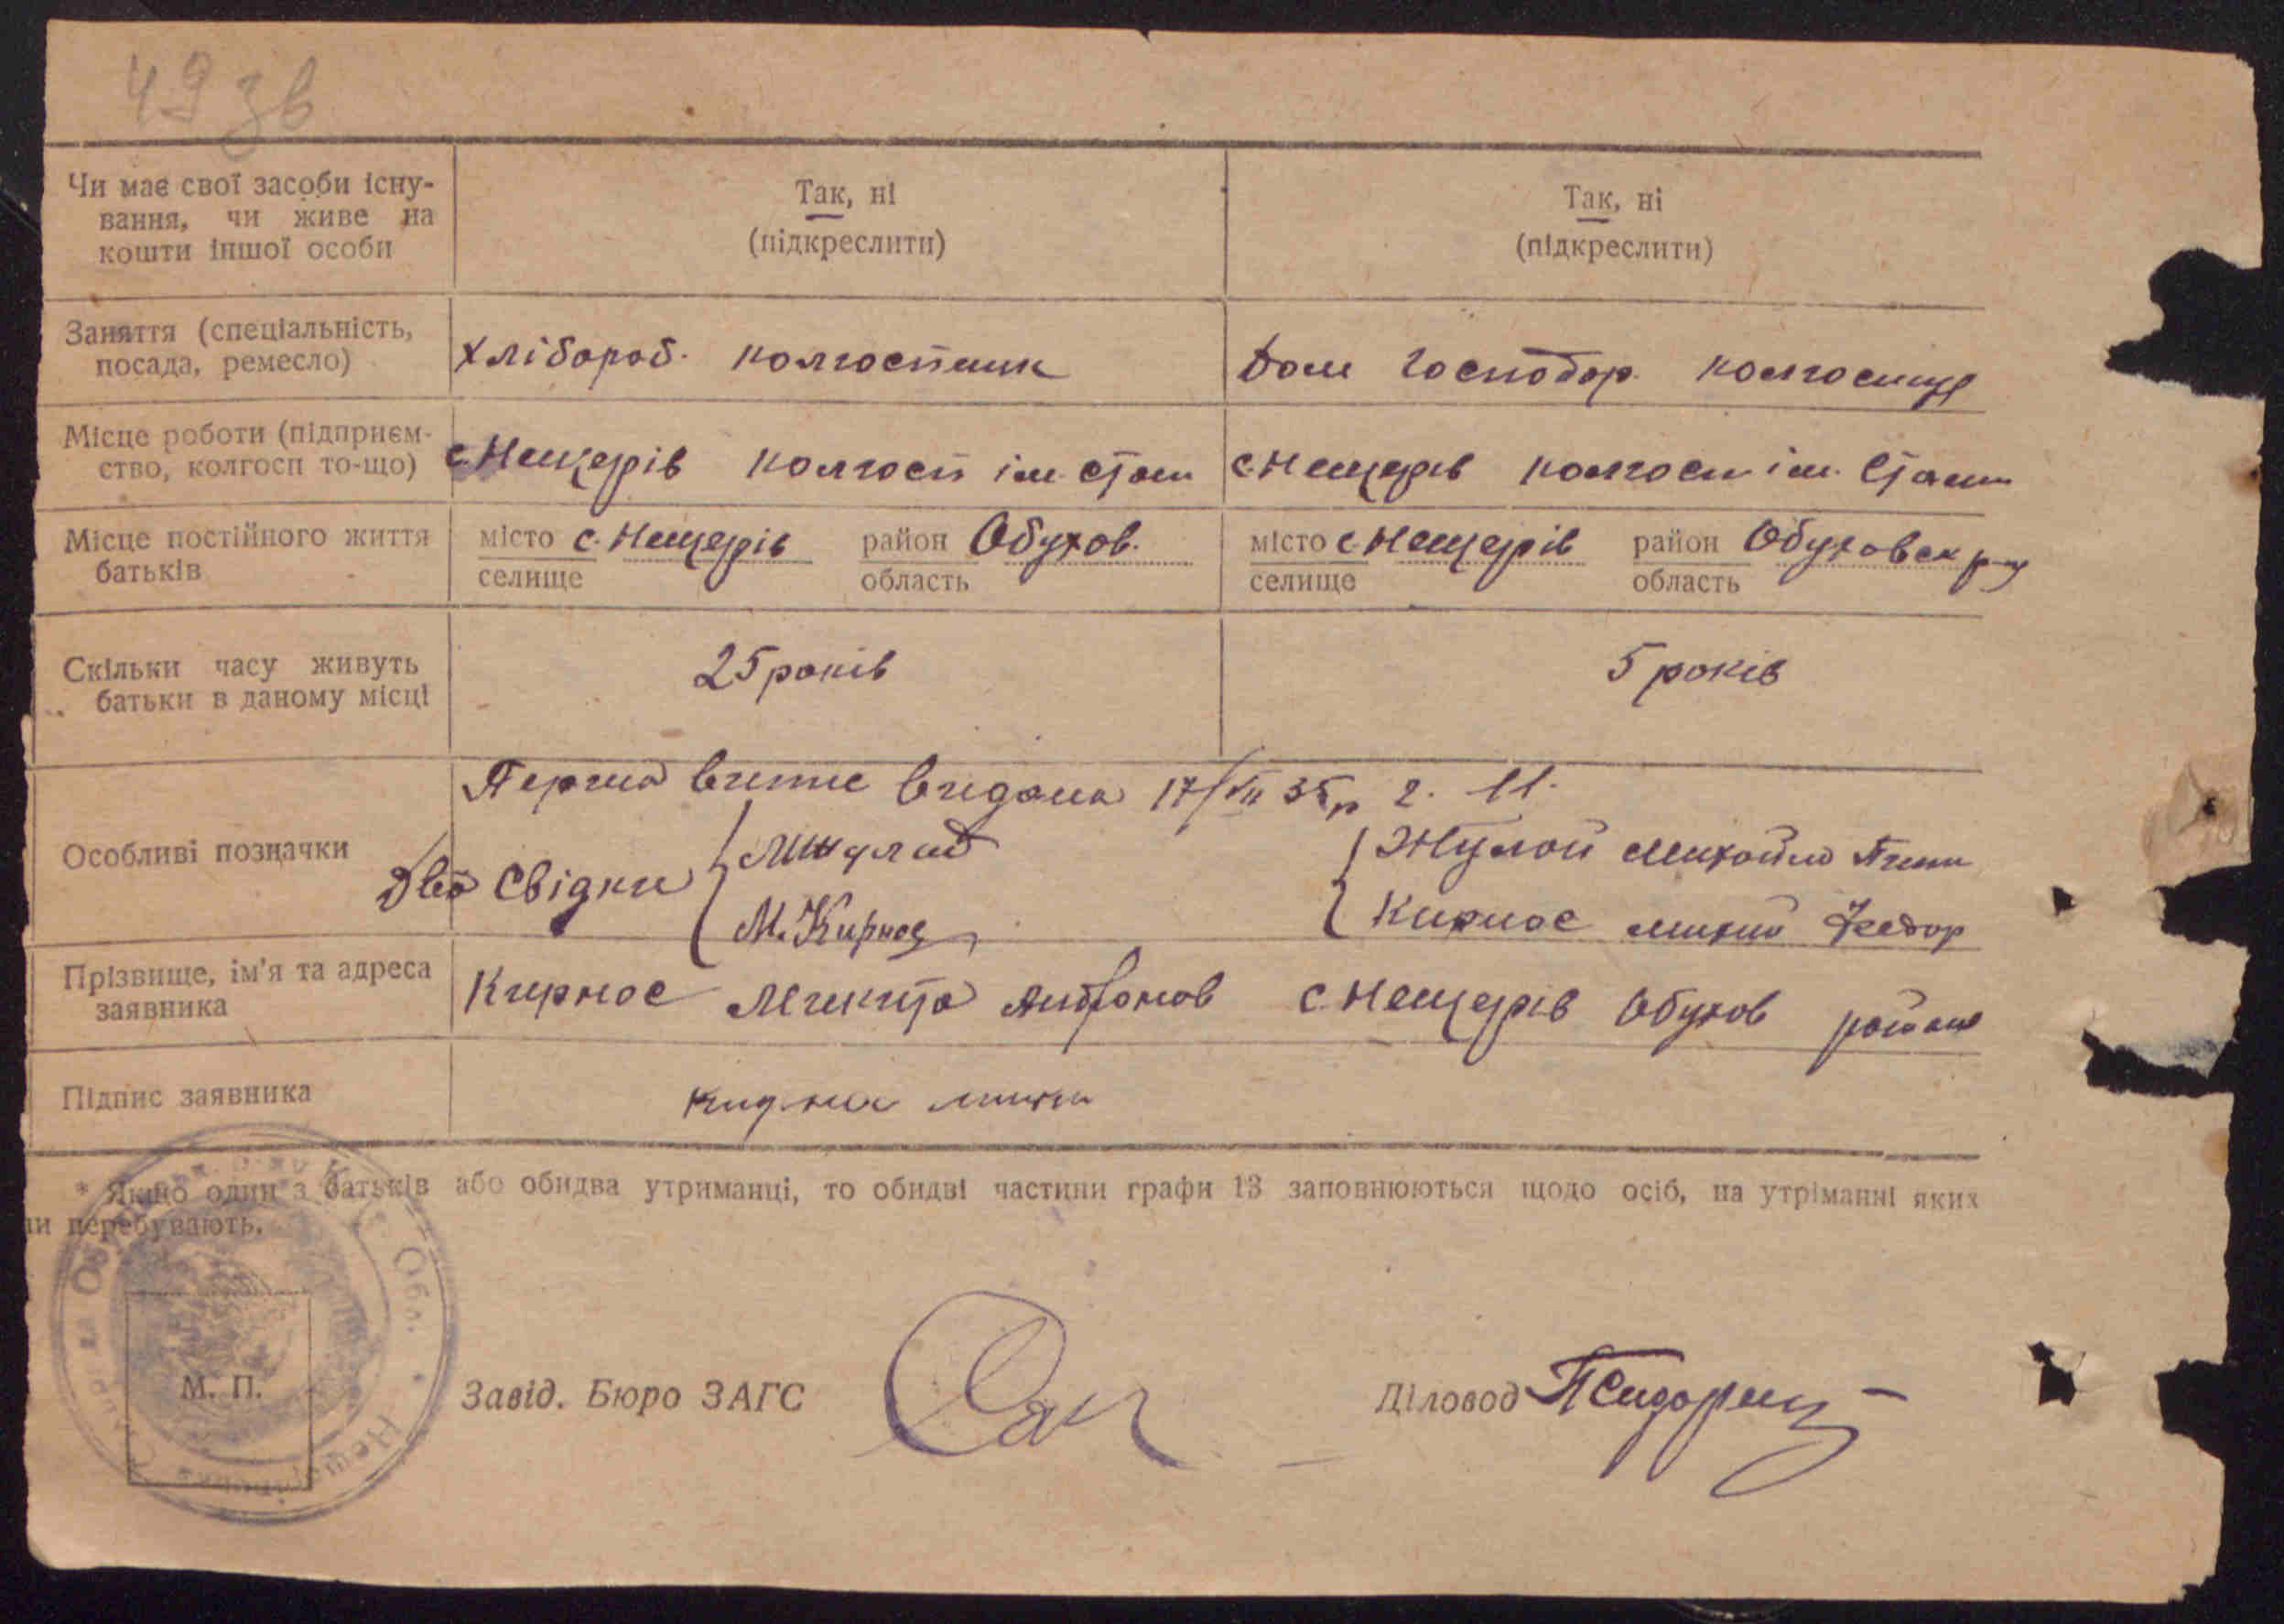 49 зв
Чи має свої засоби існу-
вання, чи живе на
кошти іншої особи
Так, ні
(підкреслити)
Так, ні
(підкреслити)
Заняття (спеціальність,
посада, ремесло)
Хлібороб. колгоспник
Дом господар. колгоспниця
Місце роботи (підприєм-
ство, колгосп то-що)
с. Нещерів колгосп ім. Стал
с. Нещерів колгосп ім. Сталін
Місце постійного життя
батьків
місто с. Нещерів район Обухов.
селище область
місто с. Нещерів район Обуховск р-ну
селище область
Скільки часу живуть
батьки в даному місці
25 років
5 років
Особливі позначки
видана 17/VII 35 р
Два Свідки
Михайло
М. Кирнос
Кирнос Федор
Прізвище, ім'я та адреса
заявника
Кирнос Микита Антонов с. Нещерів Обухов району
Підпис заявника
* Якщо один з батьків або обидва утриманці, то обидві частини графи 13 заповнюються щодо осіб, на утріманні яких
ни перебувають.
М. П.
Завід. Бюро ЗАГС
Діловод